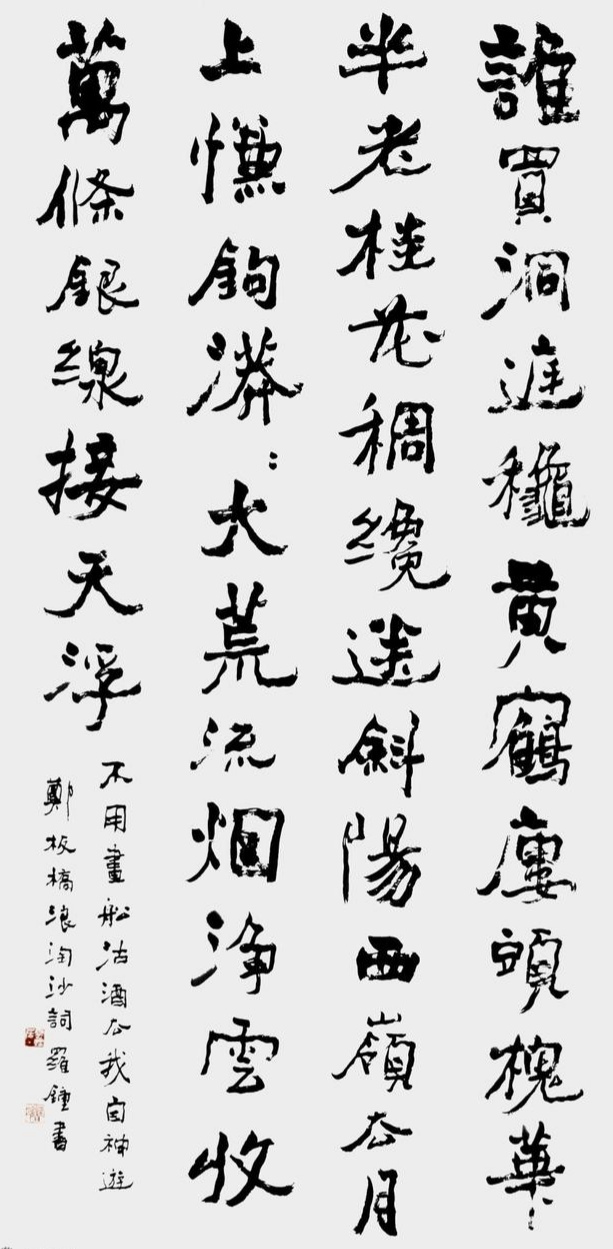 誰買洞庭龝黃鶴廔頭槐華
半老桂花稠纔送斜陽西嶺去月
上慊鉤漭〻大荒流烟淨雲收
萬條銀線接天浮
不用畫船沽酒去我自神遊
鄭板橋浪淘沙詞 羅鍾書